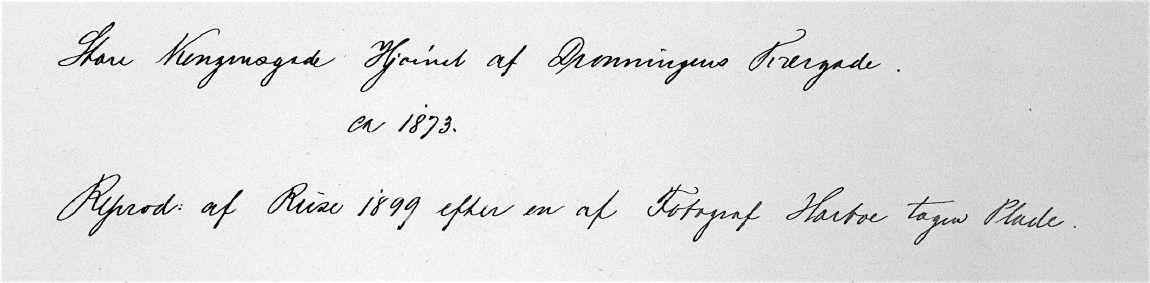 Store Kongensgade Hjørnet af Dronningens Tværgade.
ca 1873.
Reprod: af Riise 1899 efter en af Fotograf Harboe tagen Plade.